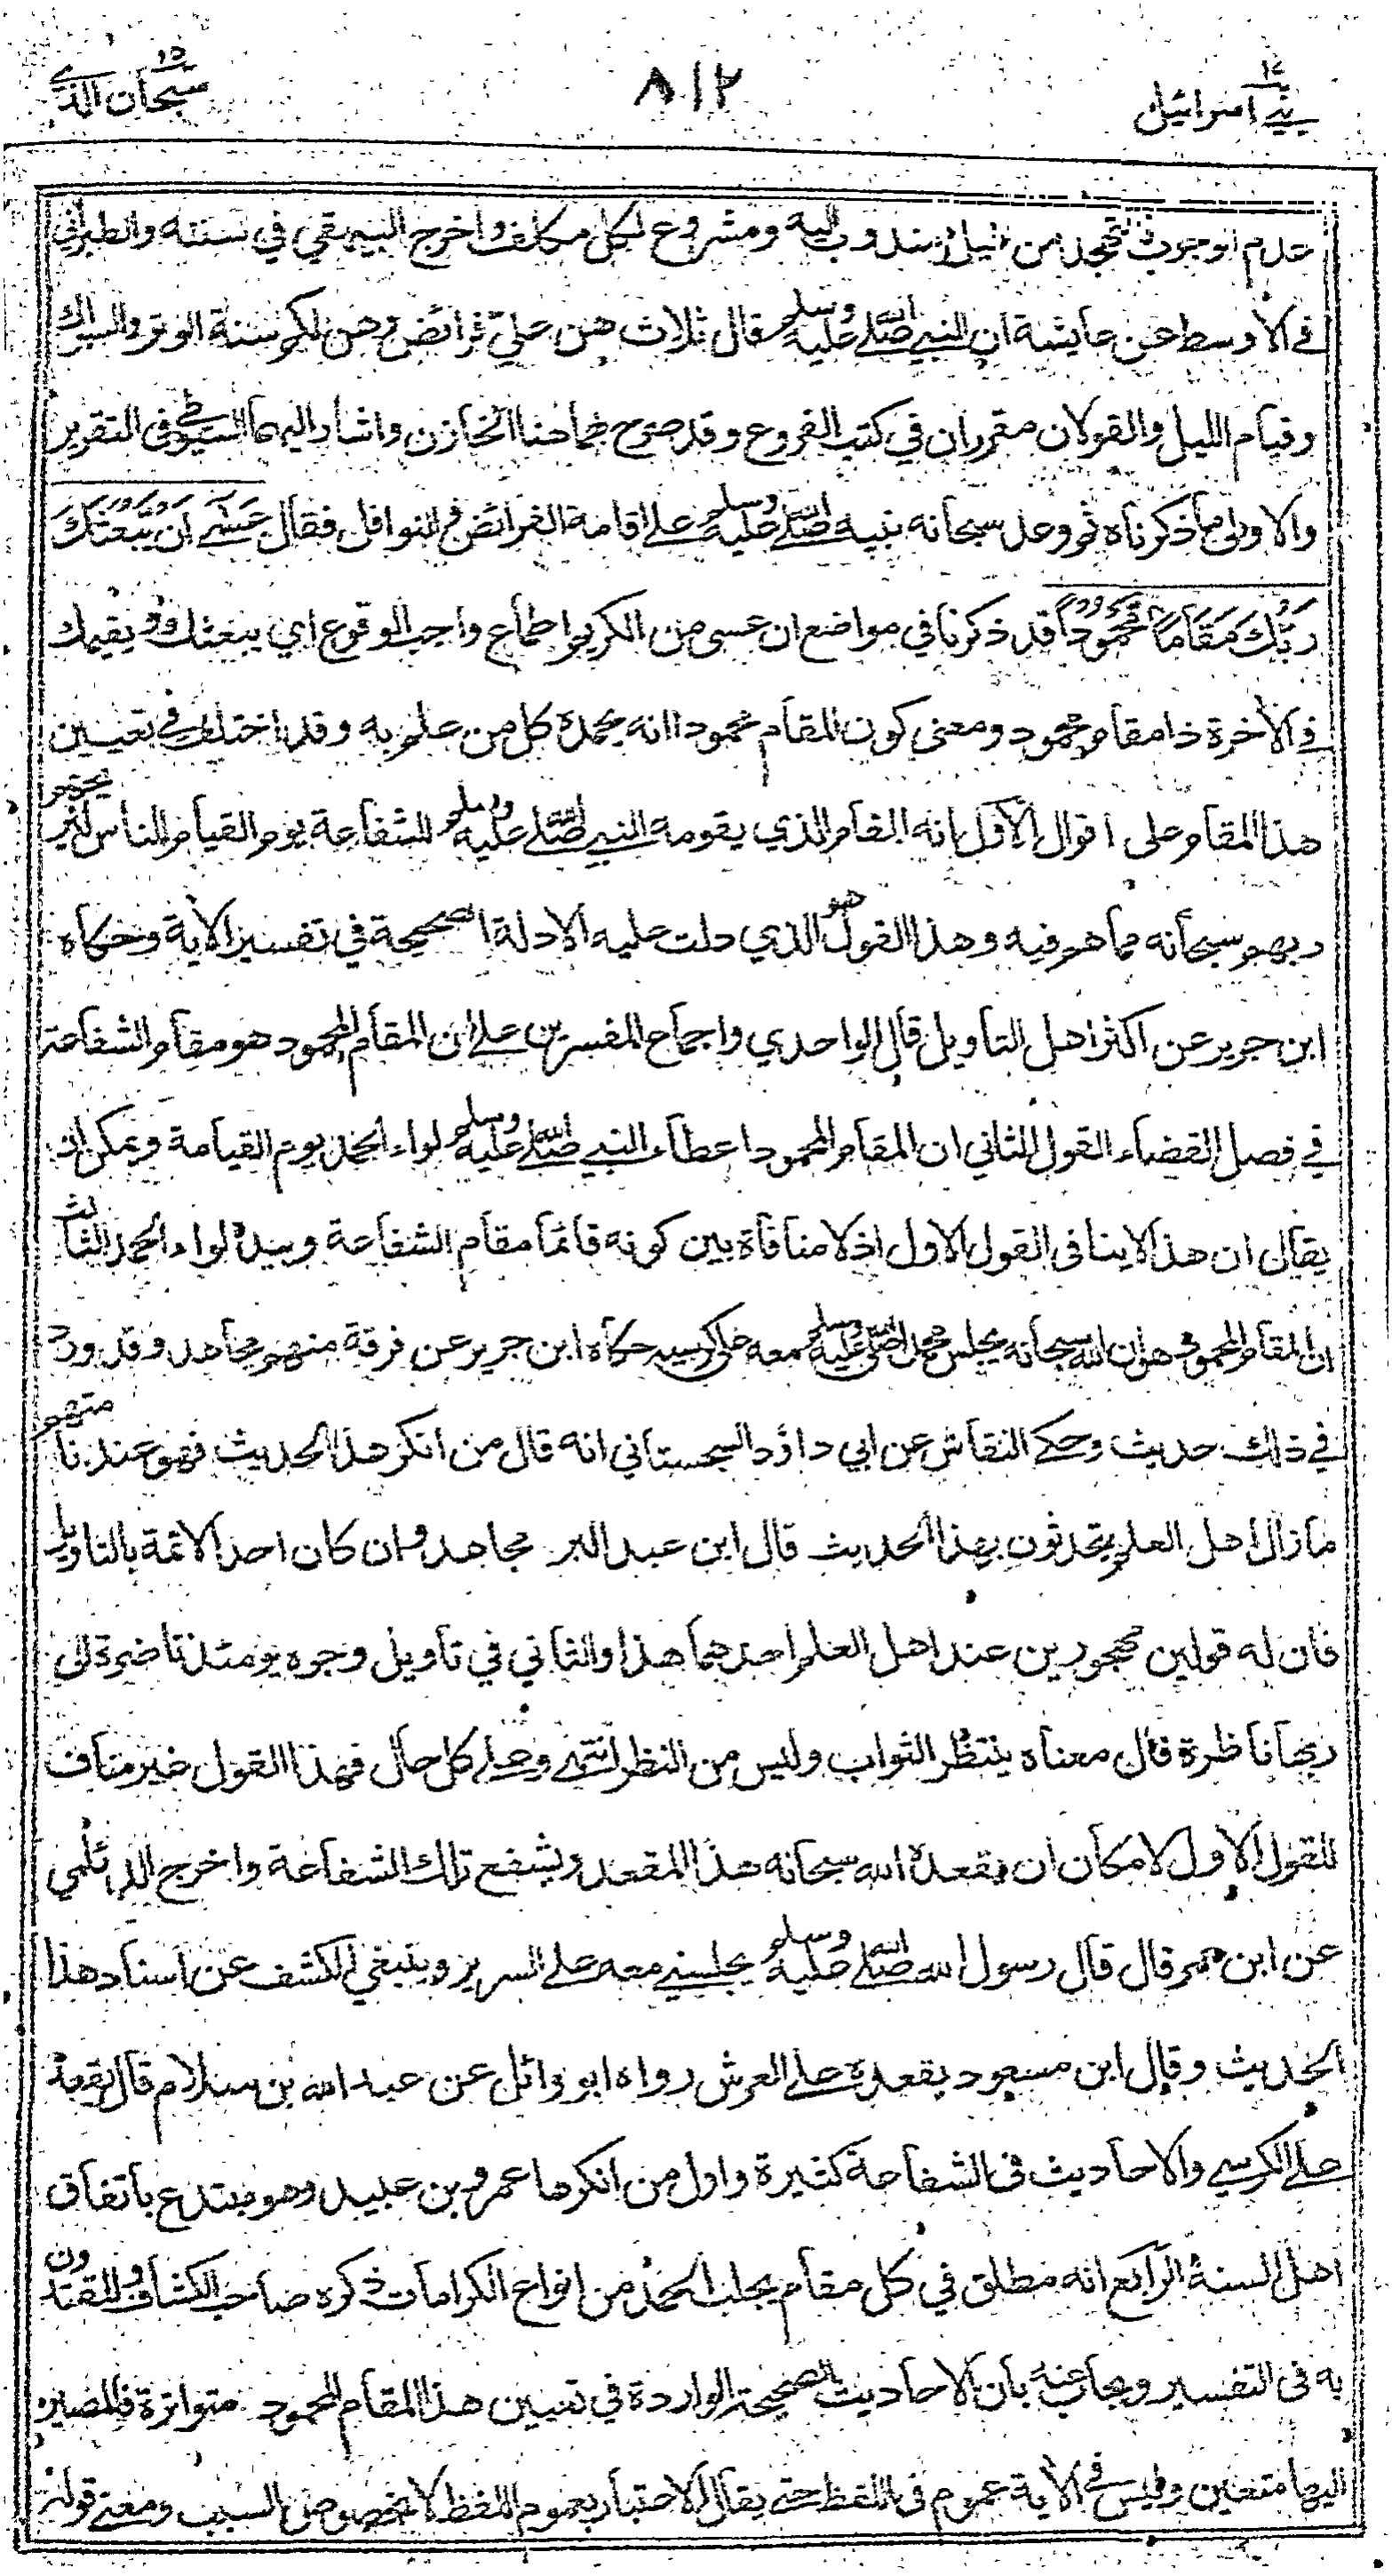 ١٧ بني اسرائيل ٨١٢ ١٥ سبحان الذي
عدم الوجوب فالتهجد من الليل مندوب اليه ومشروع لكل مكلف واخرج البيهقي في سننه والطبراني
في الأوسط عن عايشة ان النبي صلى الله عليه وسلم قال ثلاث هن علي فرائض وهن لكم سنة الوتر والسواك
وقيام الليل والقولان مقرران في كتب الفروع وقد صرح بهما هنا الخازن واشار اليهما السيوطي في التقرير
والاولى ما ذكرناه ثم وعد سبحانه نبيه صلى الله عليه وسلم على اقامة الفرائض والنوافل فقال عَسٰى اَنْ يَّبْعَثَكَ
رَبُّكَ مَقَامًا مَّحْمُودًا قد ذكرنا في مواضع ان عسى من الكريم اطماع واجب الوقوع اي يبعثك ويقيمك
في الأخرة ذا مقام محمود ومعنى كون المقام محمودا انه يحمده كل من علم به وقد اختلف في تعيين
هذا المقام على اقوال الأول انه المقام الذي يقومه النبي صلى الله عليه وسلم للشفاعة يوم القيام للناس ليريحهم
ربهم سبحانه مما هم فيه وهذا القول هو الذي دلت عليه الادلة الصحيحة في تفسير الأية وحكاه
ابن جرير عن اكثر اهل التاويل قال الواحدي واجماع المفسرين على ان المقام المحمود هو مقام الشفاعة
في فصل القضاء القول الثاني ان المقام المحمود اعطاء النبي صلى الله عليه وسلم لواء الحمد يوم القيامة ويمكن ان
يقال ان هذا لاينافي القول الاول اذ لا منافاة بين كونه قائما مقام الشفاعة وبيده لواء الحمد الثالث
ان المقام المحمود هو ان الله سبحانه يجلس محمدا صلى الله عليه وسلم معه على كرسيه حكاه ابن جرير عن فرقة منهم مجاهد وقد ورد
في ذلك حديث وحكى النقاش عن ابي داؤد السجستاني انه قال من انكر هذا الحديث فهو عندنا متهم
ما زال اهل العلم يتحدثون بهذا الحديث قال ابن عبد البر مجاهد وان كان احد الائمة بالتاويل
فان له قولين مهجورين عند اهل العلم احدهما هذا والثاني في تاويل وجوه يومئذ ناضرة الى
ربها ناظرة قال معناه ينتظر الثواب وليس من النظر انتهى وعلى كل حال فهذا القول غير مناف
للقول الاول لامكان ان يقعده الله سبحانه هذا المقعد ويشفع تلك الشفاعة واخرج الديلمي
عن ابن عمر قال قال رسول الله صلى الله عليه وسلم يجلسني معه على السرير وينبغي الكشف عن اسناد هذا
الحديث وقال ابن مسعود يقعده على العرش رواه ابو وائل عن عبد الله بن سلام قال يقعده
على الكرسي والاحاديث في الشفاعة كثيرة واول من انكرها عمرو بن عبيد وهو مبتدع باتفاق
اهل السنة الرابع انه مطلق في كل مقام يجلب الحمد من انواع الكرامات ذكره صاحب الكشاف والمقتدون
به في التفسير ويجاب عنه بان الاحاديث الصحيحة الواردة في تعيين هذا المقام المحمود متواترة فالمصير
اليها متعين وليس في الأية عموم في اللفظ حتى يقال الاعتبار بعموم اللفظ لا بخصوص السبب ومعنى قوله